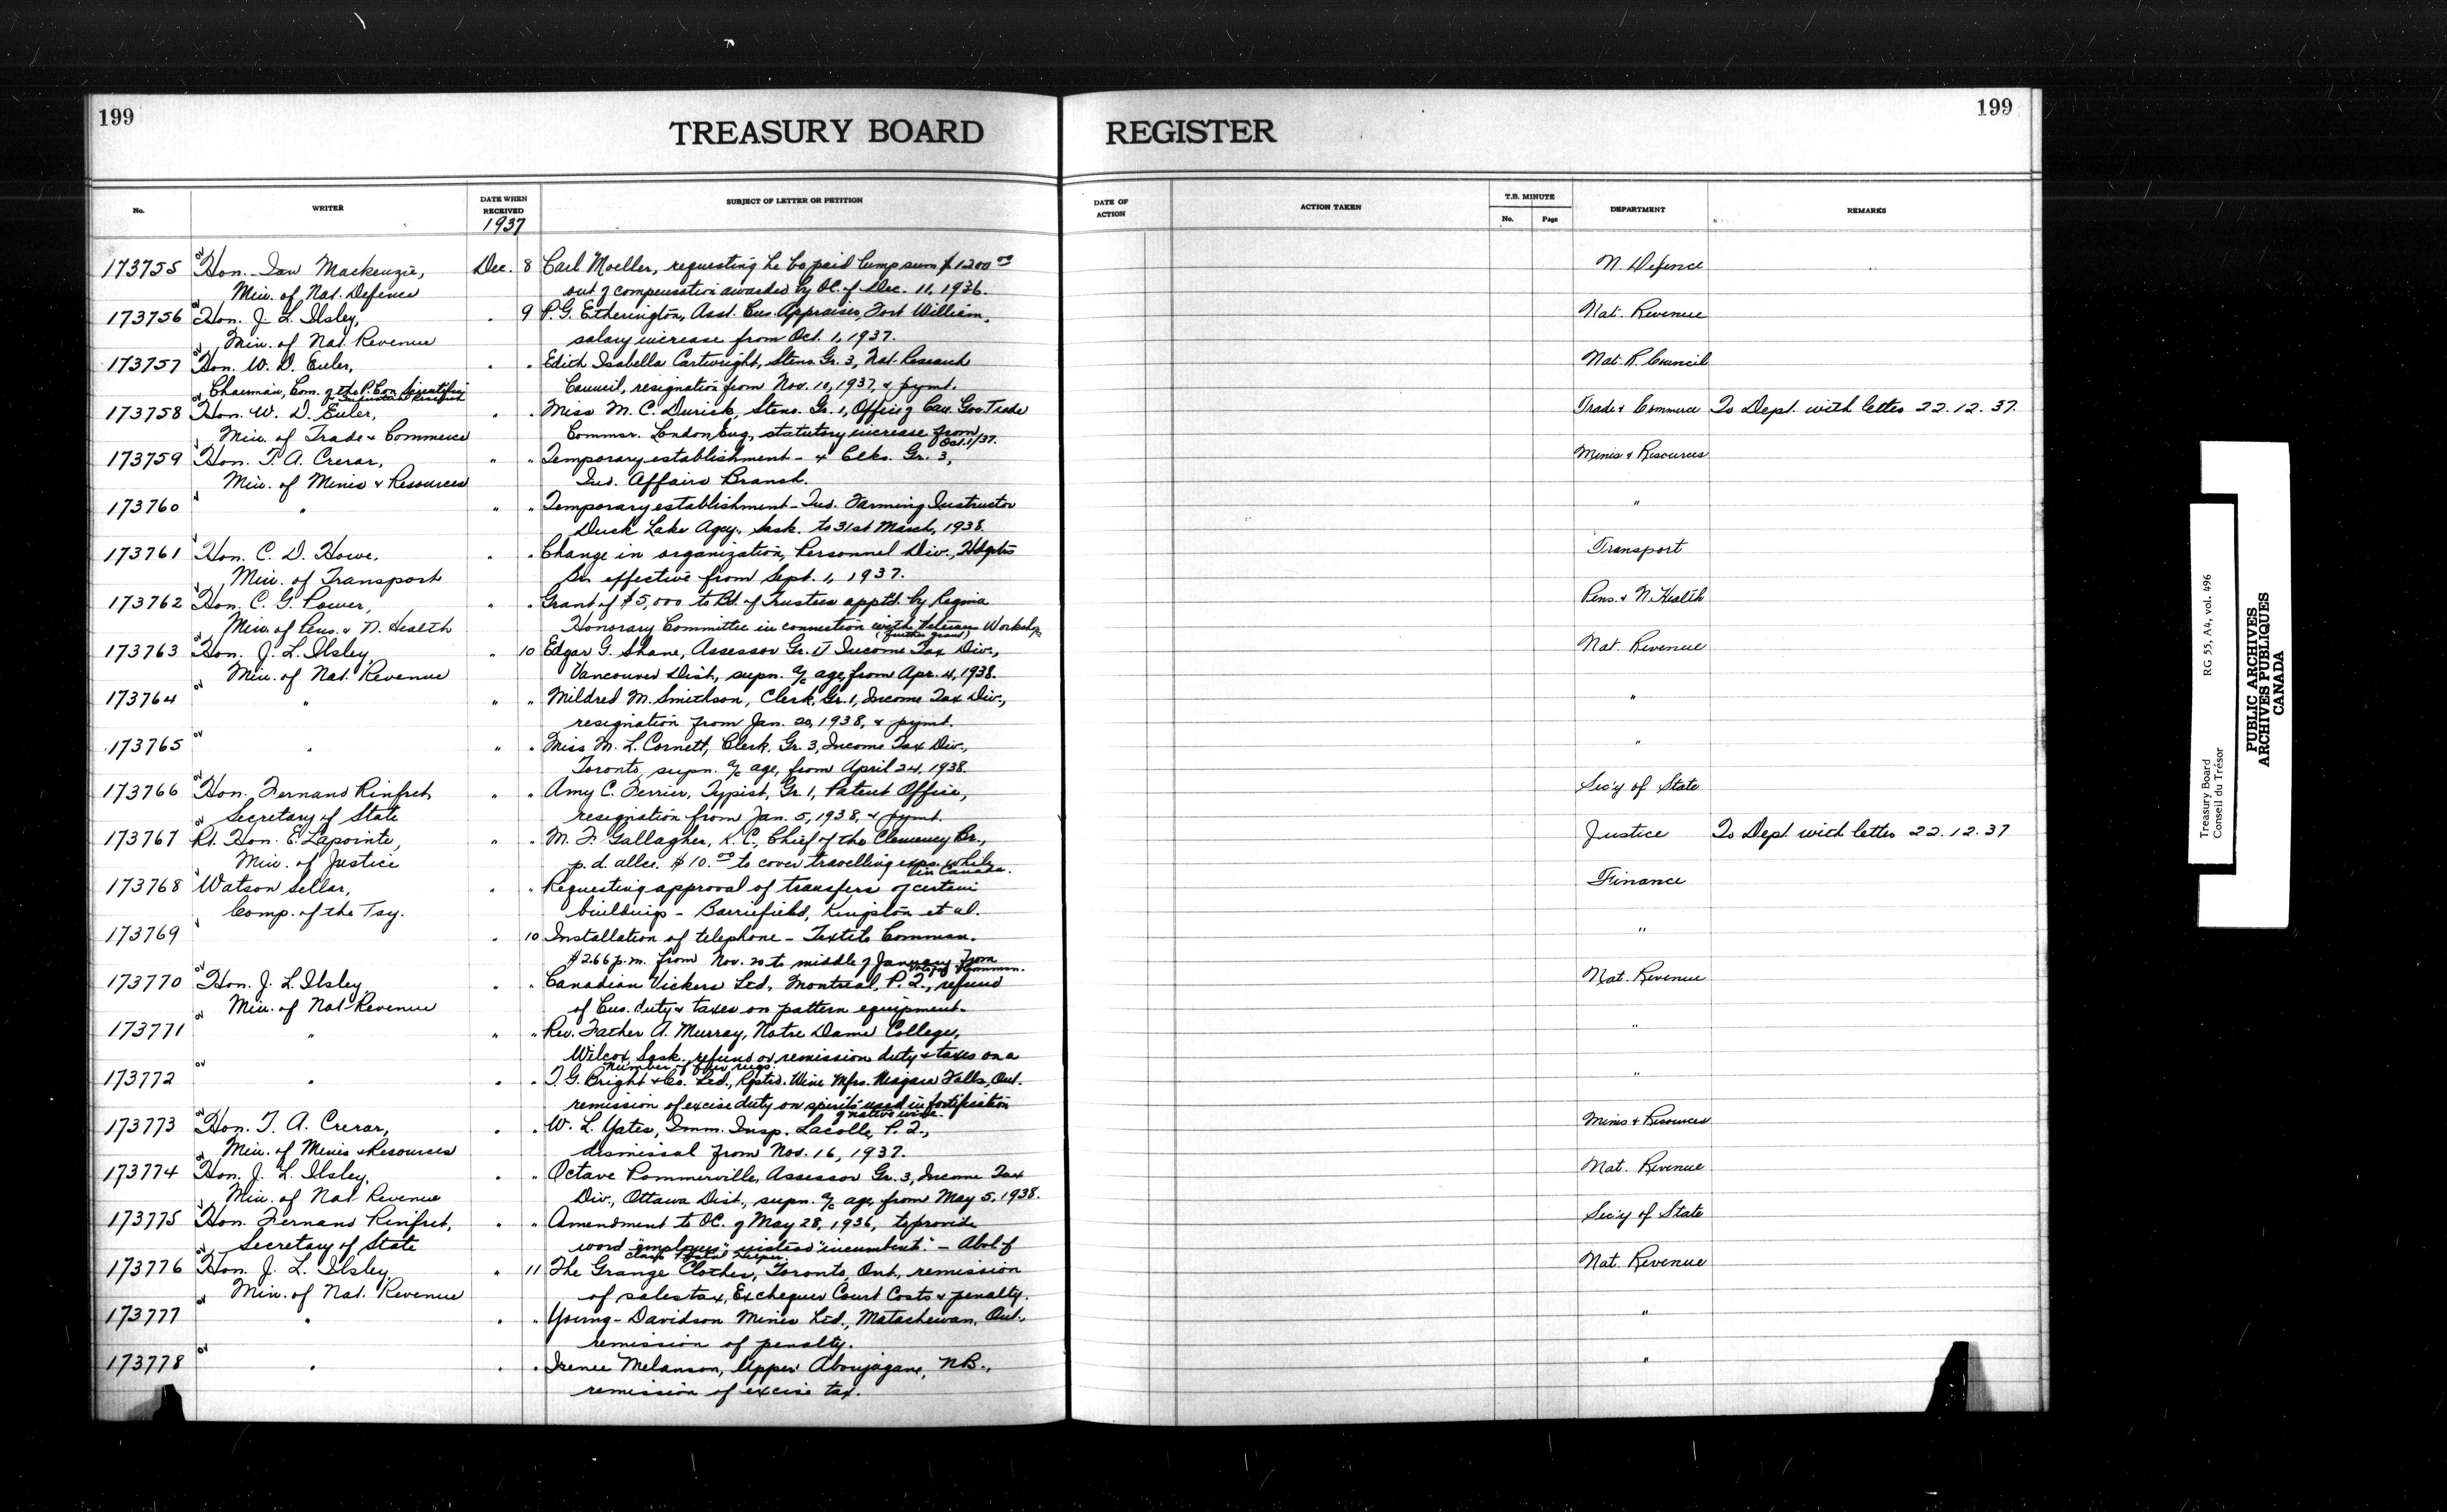 199
199
TREASURY BOARD REGISTER
No. WRITER DATE WHEN RECEIVED 1937 SUBJECT OF LETTER OR PETITION DATE OF ACTION ACTION TAKEN T.B. MINUTE No. Page DEPARTMENT REMARKS
173755 Hon. Ian Mackenzie, Dec. 8 Carl Moeller, requesting he be paid lump sum $1200 00 N. Defence
Min. of Nat. Defence out of compensation awarded by OC. of Dec. 11, 1936.
173756 Hon. J. L. Ilsley, " 9 P. G. Etherington, Asst. Cus. Appraiser, Fort William, Nat. Revenue
Min. of Nat. Revenue salary increase from Oct. 1, 1937.
173757 Hon. W. D. Euler, " " Edith Isabella Cartwright, Steno. Gr. 3, Nat. Research Nat. R. Council
Chairman, Com. of the P. Con. Scientific & Industrial Research Council, resignation from Nov. 10, 1937, & pymt.
173758 Hon. W. D. Euler, " " Miss M. C. Durick, Steno. Gr. 1, Office of Can. Gov. Trade Trade & Commerce To Dept. with letter 22.12.37.
Min. of Trade & Commerce Commsr. London Eng., statutory increase from Oct. 1/37.
173759 Hon. T. A. Crerar, " " Temporary establishment - 4 Clks. Gr. 3, Mines & Resources
Min. of Mines & Resources Ind. Affairs Branch.
173760 " " " Temporary establishment - Ind. Farming Instructor "
Duck Lake Agcy. Sask. to 31st March, 1938.
173761 Hon. C. D. Howe, " " Change in organization, Personnel Div., Hdqtrs Transport
Min. of Transport Br. effective from Sept. 1, 1937.
173762 Hon. C. G. Power, " " Grant of $5,000 to Bd. of Trustees apptd. by Regina Pens. & N. Health
Min. of Pens. & N. Health Honorary Committee in connection with Veterans Workshop (further grant)
173763 Hon. J. L. Ilsley, " 10 Edgar G. Shane, Assessor Gr. Income Tax Div., Nat. Revenue
Min. of Nat. Revenue Vancouver Dist., supn. a/c age, from Apr. 4, 1938.
173764 " " " Mildred M. Smithson, Clerk, Gr. 1, Income Tax Div., "
resignation from Jan. 20, 1938, & pymt.
173765 " " " Miss M. L. Cornett, Clerk, Gr. 3, Income Tax Div., "
Toronto, supn. a/c age, from April 24, 1938.
173766 Hon. Fernand Rinfret, " " Amy C. Ferrier, Typist, Gr. 1, Patent Office, Sec'y of State
Secretary of State resignation from Jan. 5, 1938, & pymt.
173767 Rt. Hon. E. Lapointe, " " M. F. Gallagher, K. C., Chief of the Clemency Br., Justice To Dept. with letter 22.12.37
Min. of Justice p. d. allce. $10.00 to cover travelling exps. while in Canada.
173768 Watson Sellar, " " Requesting approval of transfers of certain Finance
Comp. of the Tsy. buildings - Barriefield, Kingston et al.
173769 " 10 Installation of telephone - Textile Commsn. "
$2.66 p.m. from Nov. 20 to middle of January from Vote of Commsn.
173770 Hon. J. L. Ilsley, " " Canadian Vickers Ltd., Montreal, P. Q., refund Nat. Revenue
Min. of Nat Revenue of Cus. duty & taxes on pattern equipment.
173771 " " " Rev. Father A. Murray, Notre Dame College, "
Wilcox, Sask., refund or remission duty & taxes on a number of rugs.
173772 " " " T. G. Bright & Co. Ltd., Rgstrd. Wine Mfrs. Niagara Falls, Ont. "
remission of excise duty on spirits used in fortification of native wine.
173773 Hon. T. A. Crerar, " " W. L. Yates, Imm. Insp. Lacolle, P. Q., Mines & Resources
Min. of Mines & Resources dismissal from Nov. 16, 1937.
173774 Hon. J. L. Ilsley, " " Octave Pommerville, Assessor Gr. 3, Income Tax Nat. Revenue
Min. of Nat. Revenue Div., Ottawa Dist., supn. a/c age, from May 5, 1938.
173775 Hon. Fernand Rinfret, " " Amendment to OC. of May 28, 1936, to provide Sec'y of State
Secretary of State word "employee" instead "incumbent." - Abol. of class Postal Helper.
173776 Hon. J. L. Ilsley, " 11 The Grange Clothes, Toronto, Ont., remission Nat. Revenue
Min. of Nat. Revenue of sales tax, Exchequer Court Costs & penalty.
173777 " " " Young-Davidson Mines Ltd., Matachewan, Ont., "
remission of penalty.
173778 " " " Irenee Melanson, Upper Aboujagane, N.B., "
remission of excise tax.
Treasury Board RG 55, A4, vol. 496
Conseil du Trésor
PUBLIC ARCHIVES
ARCHIVES PUBLIQUES
CANADA